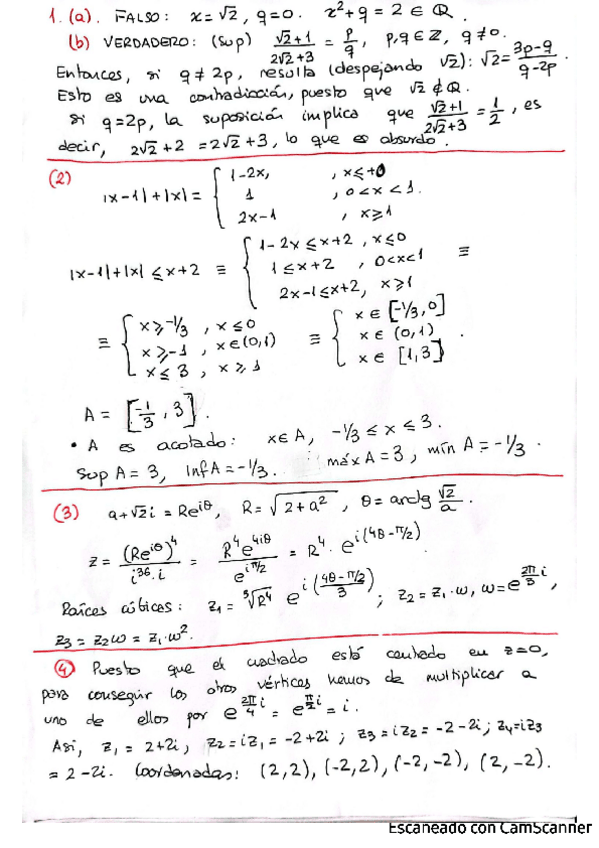 1. (a). FALSO: x=√2, q=0. x²+q = 2 ∈ Q.
(b) VERDADERO: (Sup) (√2+1)/(2√2+3) = p/q, p,q ∈ Z, q≠0.
Entonces, si q ≠ 2p, resulta (despejando √2): √2 = (3p-q)/(q-2p).
Esto es una contradicción, puesto que √2 ∉ Q.
si q=2p, la suposición implica que (√2+1)/(2√2+3) = 1/2, es
decir, 2√2+2 = 2√2+3, lo que es absurdo.
(2)
|x-1|+|x| = { 1-2x, , x≤+0
1 , 0<x<1.
2x-1 , x≥1
|x-1|+|x| ≤ x+2 ≡ { 1-2x ≤ x+2 , x≤0
1 ≤ x+2 , 0<x<1 ≡
2x-1 ≤ x+2, x≥1
≡ { x≥-1/3 , x≤0 ≡ { x ∈ [-1/3,0]
x≥-1 , x∈(0,1) x ∈ (0,1) .
x≤3 , x≥1 x ∈ [1,3]
A = [-1/3, 3].
• A es acotado: x∈A, -1/3 ≤ x ≤ 3.
Sup A = 3, Inf A = -1/3. máx A = 3, mín A = -1/3.
(3) a+√2i = Re^{iθ}, R = √(2+a²), θ = arctg √2/a.
z = (Re^{iθ})^4/(i^{36}·i) = R^4e^{4iθ}/e^{iπ/2} = R^4·e^{i(4θ-π/2)}
Raíces cúbicas: z₁ = ³√R^4 e^{i((4θ-π/2)/3)}; z₂=z₁·w, w=e^{2π/3 i},
z₃ = z₂w = z₁·w².
(4) Puesto que el cuadrado está centrado en z=0,
para conseguir los otros vértices hemos de multiplicar a
uno de ellos por e^{2π/4 i} = e^{π/2 i} = i.
Así, z₁ = 2+2i, z₂=iz₁ = -2+2i; z₃=iz₂ = -2-2i; z₄=iz₃
= 2-2i. Coordenadas: (2,2), (-2,2), (-2,-2), (2,-2).
Escaneado con CamScanner